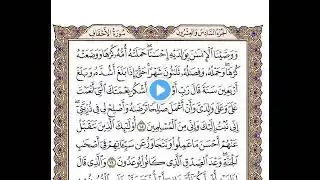 الجزء السادس والعشرون سورة الأحقاف
ووصينا الإنسن بولديه إحسنا حملته أمه كرها ووضعته
كرها وحمله وفصله ثلثون شهرا حتى إذا بلغ أشده وبلغ
أربعين سنة قال رب أوزعني أن أشكر نعمتك التي أنعمت
علي وعلى ولدي وأن أعمل صلحا ترضىه وأصلح لي في ذريتي
إني تبت إليك وإني من المسلمين أولئك الذين نتقبل
عنهم أحسن ما عملوا ونتجاوز عن سيئاتهم في أصحب
الجنة وعد الصدق الذي كانوا يوعدون والذي قال